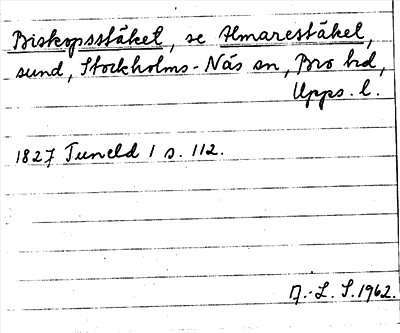 Biskopsstäket, se Almarestäket,
sund, Stockholms-Näs sn, Bro hd,
Upps. l.
1827 Tuneld 1 s. 112.
A.-L. S. 1962.